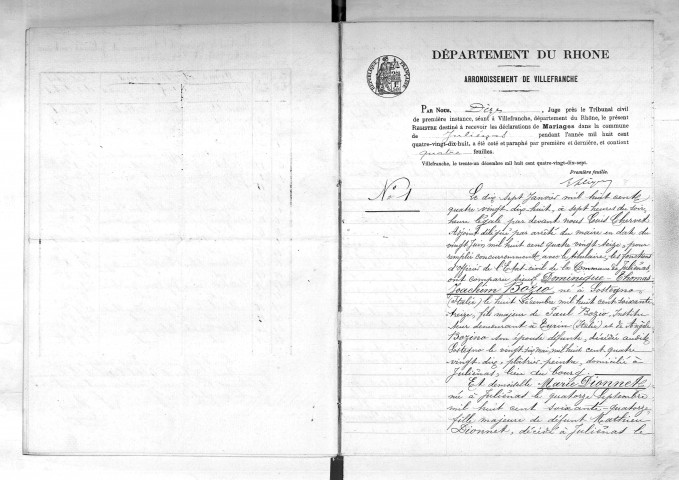 RÉPUBLIQUE FRANÇAISE
DÉPARTEMENT DU RHONE
ARRONDISSEMENT DE VILLEFRANCHE
PAR NOUS, , Juge près le Tribunal civil
de première instance, séant à Villefranche, département du Rhône, le présent
REGISTRE destiné à recevoir les déclarations de Mariages dans la commune
de Juliénas pendant l'année mil huit cent
quatre-vingt-dix-huit, a été coté et paraphé par première et dernière, et contient
quatre feuilles.
Villefranche, le trente-un décembre mil huit cent quatre-vingt-dix-sept.
Première feuille.
No 1
Le dix sept Janvier mil huit cent
quatre vingt dix huit, à sept heures du soir
heure légale par devant nous Louis
Adjoint délégué par arrêté du maire en date du
vingt Juin mil huit cent quatre vingt seize, pour
remplir concurremment avec le titulaire, les fonctions
d'officier de l'Etat-civil de la Commune de Juliénas,
ont comparu Dominique-Thomas
Joachim Bozio né à Sostegno
(Italie) le huit Décembre mil huit cent soixante
treize, fils majeur de Paul Bozio, Institu
teur demeurant à Turin (Italie) et de Angèle
Bozino son épouse défunte, décédée audit
Sostegno le vingt six mai mil huit cent quatre
vingt dix, plâtrier-peintre, domicilié à
Juliénas, lieu du Bourg.
Et demoiselle Marie Dionnet
née à Juliénas le quatorze Septembre
mil huit cent soixante-quatorze,
fille majeure de défunt Mathieu
Dionnet, décédé à Juliénas le